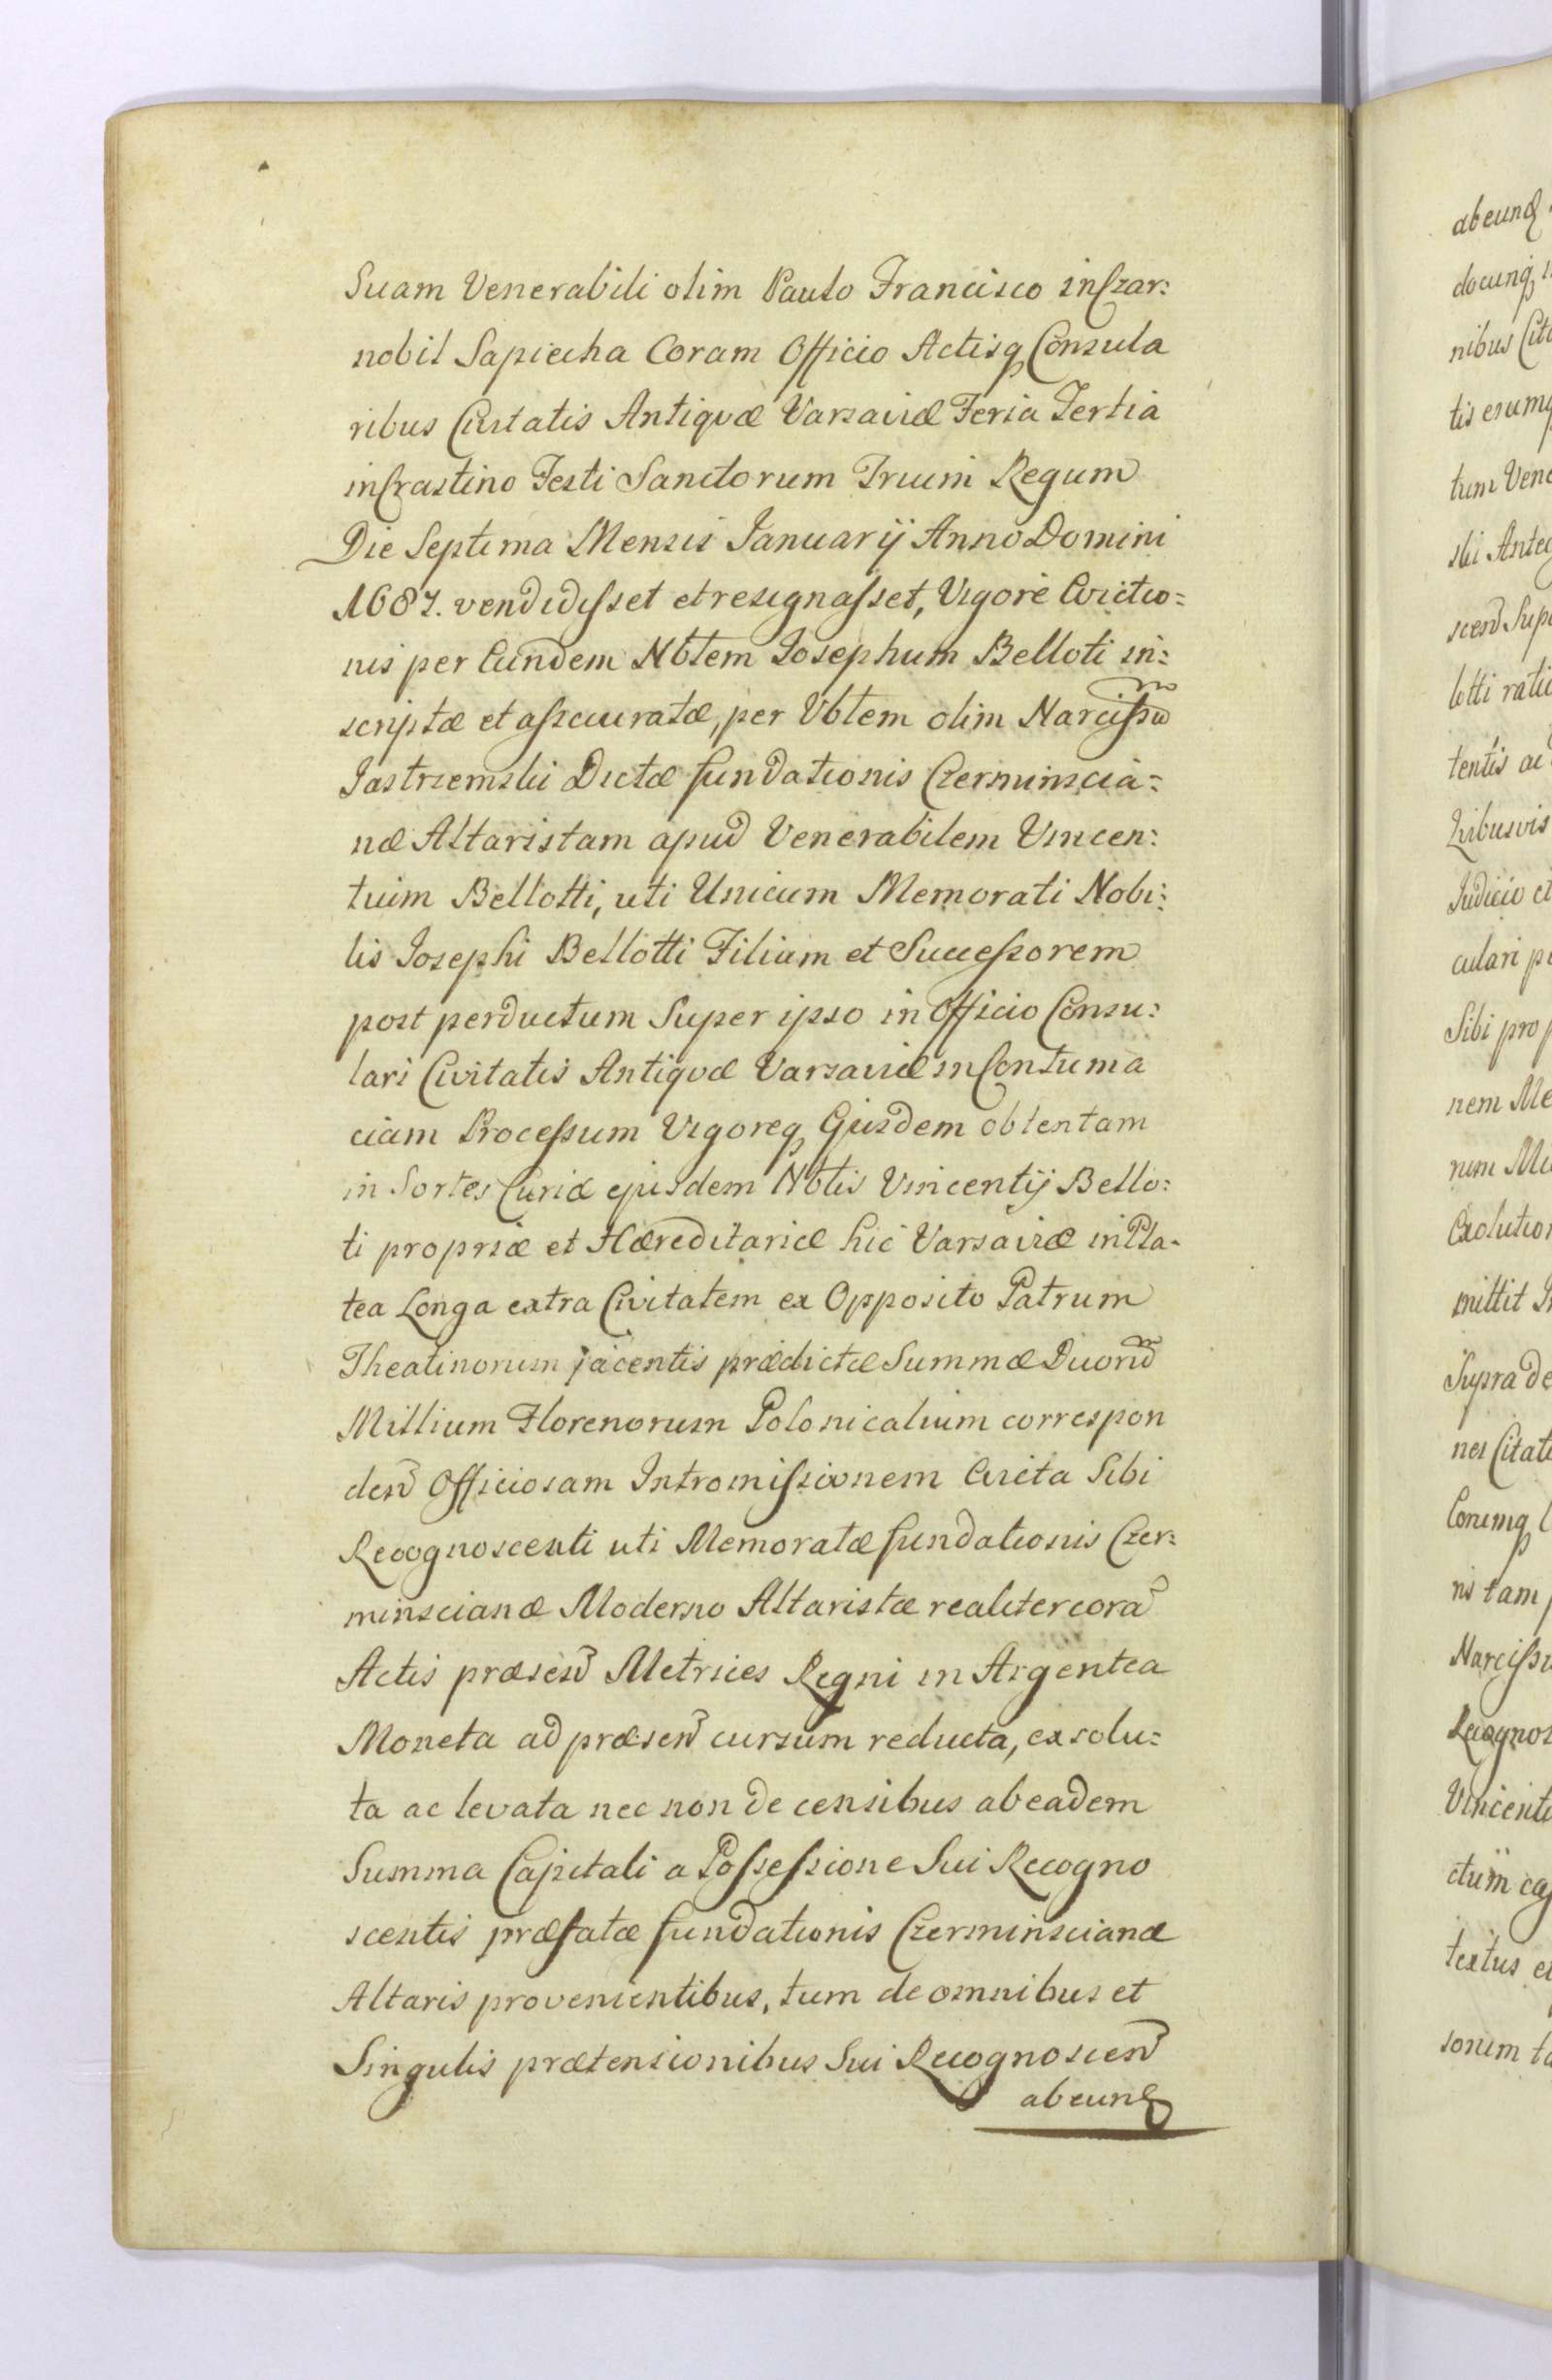 Suam Venerabili olim Paulo Francisco in Czar:
nobil Sapiecha Coram Officio Actisq Consula
ribus Civitatis Antiquæ Varsaviæ Feria Tertia
in Crastino Festi Sanctorum Trium Regum
Die Septima Mensis Januarij Anno Domini
1687. vendidisset et resignasset, Vigore Evictio=
nis per Eundem Nbtem Josephum Belloti in:
scriptæ et assecuratæ, per Vbtem olim Narcissum
Jastrzemski Dictæ fundationis Czerminscia=
næ Altaristam apud Venerabilem Vincen:
tium Bellotti, uti Unicum Memorati Nobi:
lis Josephi Bellotti Filium et Successorem
post perductum Super ipso in Officio Consu:
lari Civitatis Antiquæ Varsaviæ in Contuma
ciam Processum Vigoreq Ejusdem obtentam
in Sortes Curiæ ejusdem Nbtis Vincentij Bello:
ti propriæ et Hæreditariæ hic Varsaviæ in Pla-
tea Longa extra Civitatem ex Opposito Patrum
Theatinorum jacentis prædictæ Summæ Duorum
Millium Florenorum Polonicalium correspon
den Officiosam Intromissionem Evicta Sibi
Recognoscenti uti Memoratæ fundationis Czer:
minscianæ Moderno Altaristæ realiter cora
Actis præsen Metrices Regni in Argentea
Moneta ad præsen cursum reducta, exsolu=
ta ac levata nec non de censibus ab eadem
Summa Capitali a Possessione Sui Recogno
scentis præfatæ fundationis Czerminscianæ
Altaris provenientibus, tum de omnibus et
Singulis prætensionibus Sui Recognoscen
abeunq